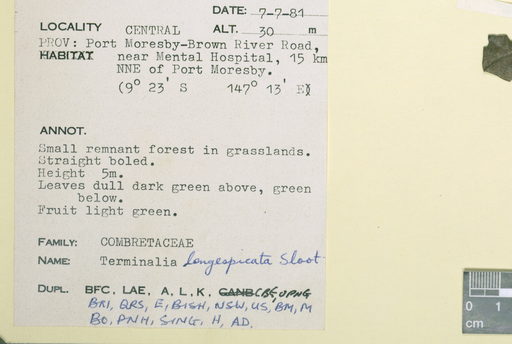 DATE: 7-7-81
LOCALITY CENTRAL ALT. 30 m
PROV: Port Moresby-Brown River Road,
HABITAT near Mental Hospital, 15 km
NNE of Port Moresby.
(9° 23' S 147° 13' E)
ANNOT.
Small remnant forest in grasslands.
Straight boled.
Height 5m.
Leaves dull dark green above, green
below.
Fruit light green.
FAMILY: COMBRETACEAE
NAME: Terminalia longespicata Sloot
DUPL. BFC, LAE, A, L, K, CANB CBG, UPNG
BRI, QRS, E, BISH, NSW, US, BM, M
BO, PNH, SING, H, AD.
0 1
cm